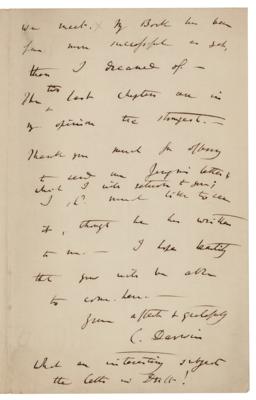 we meet. My Book has been
far more successful as yet,
than I dreamed of —
The two last chapters are in
my opinion the strongest. —
Thank you much for offering
to send me Jenyns letter &
which I will return to you;
I shd much like to see
it, though he has written
to me. — I hope heartily
that you will be able
to come here —
Your affect & gratefully
C. Darwin
What an interesting subject
the letter in